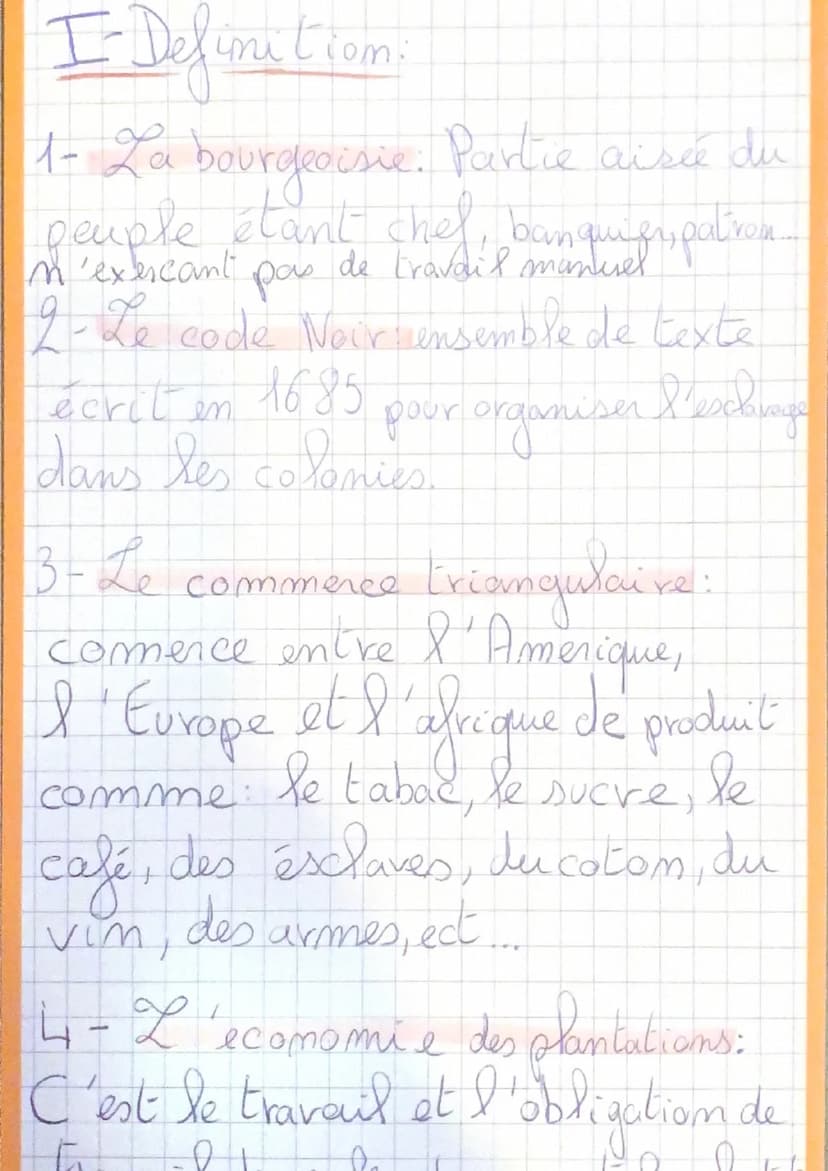 I-Definition:
1- La bourgeoisie: Partie aisée du
peuple étant chef, banquier, patron...
n'exercant pas de travail manuel
2- Le code Noir: ensemble de texte
écrit en 1685 pour organiser l'esclavage
dans les colonies.
3- Le commerce triangulaire:
commerce entre l'Amerique,
l'Europe et l'afrique de produit
comme: le tabac, le sucre, le
café, des ésclaves, du coton, du
vin, des armes, ect...
4- L'économie des plantations:
C'est le travail et l'obligation de